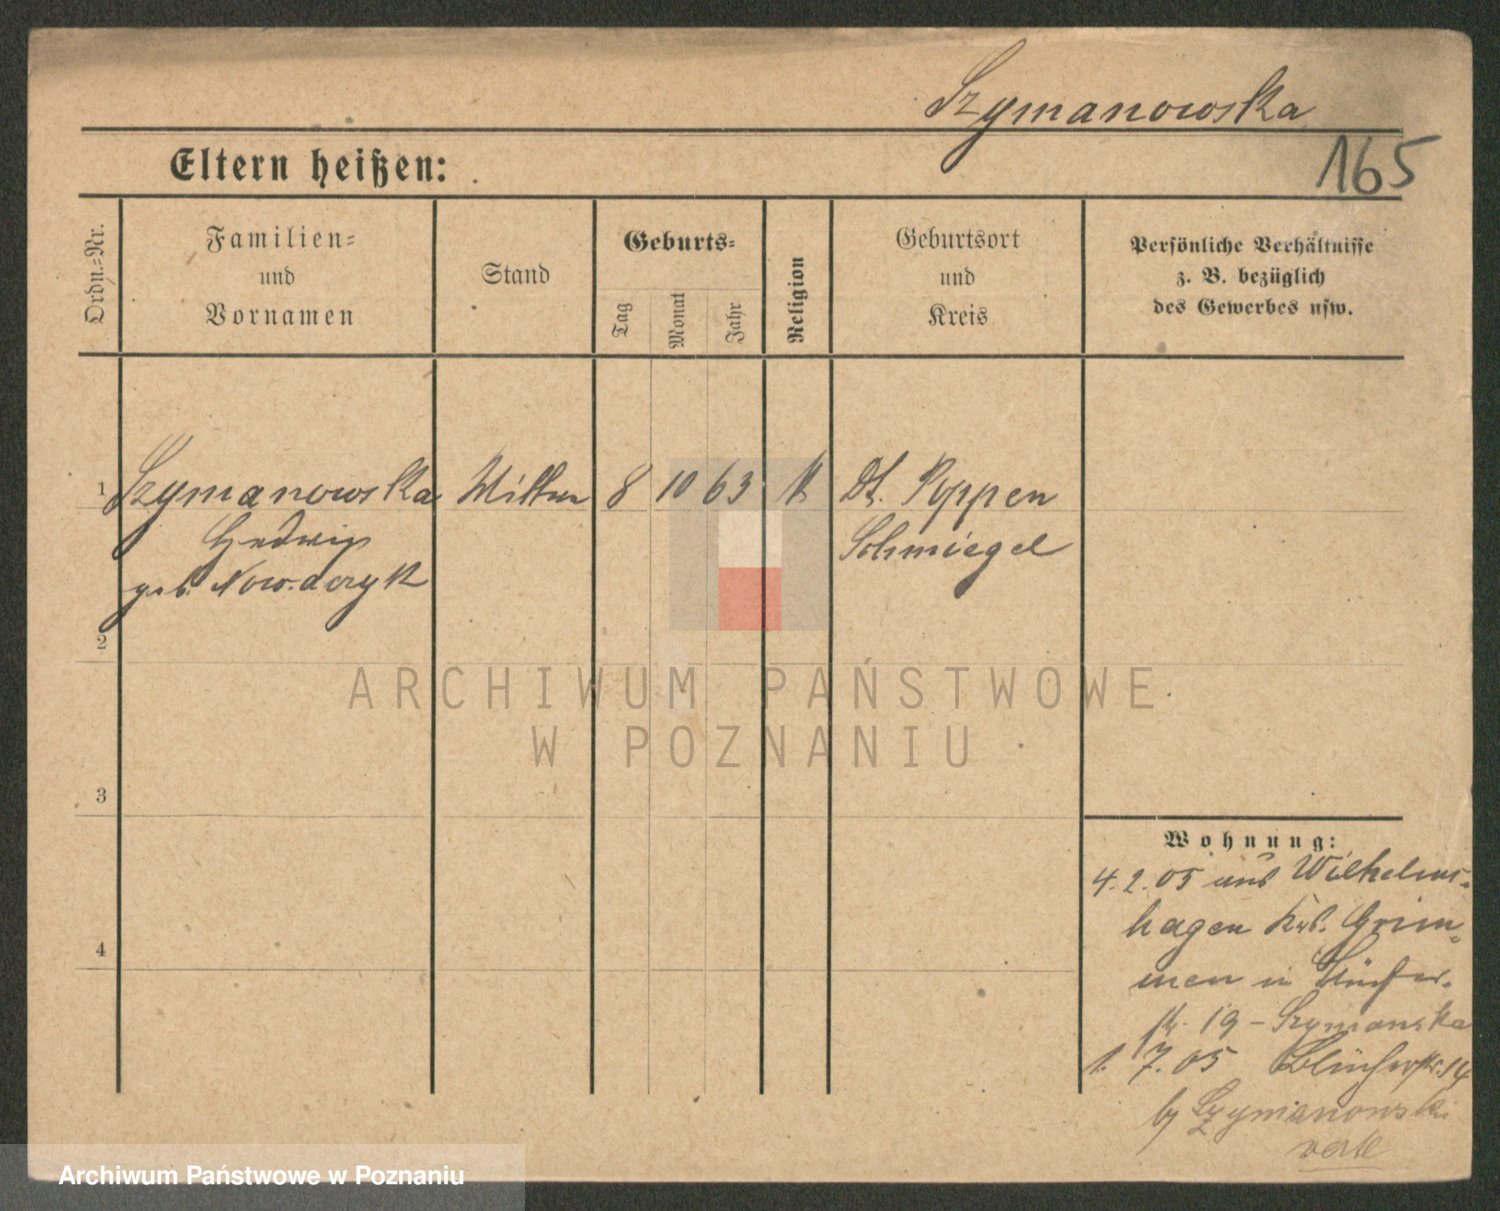 Szymanowska
165
Eltern heißen:
Ordn.-Nr.
Familien-
und
Vornamen
Stand
Geburts-
Tag
Monat
Jahr
Religion
Geburtsort
und
Kreis
Persönliche Verhältnisse
z. B. bezüglich
des Gewerbes usw.
1 Szymanowska 8 10 63 K Dt. Poppen
Hedwig Schmiegel
geb. Nowaczyk
2
ARCHIWUM PAŃSTWOWE
W POZNANIU
3
Wohnung:
4.2.05 aus Wilhelms-
hagen Krs. Grim-
men n
19 - Szymanska
1. 7. 05 Blücherstr. 14
b/ Szymanowski
verte
4
Archiwum Państwowe w Poznaniu